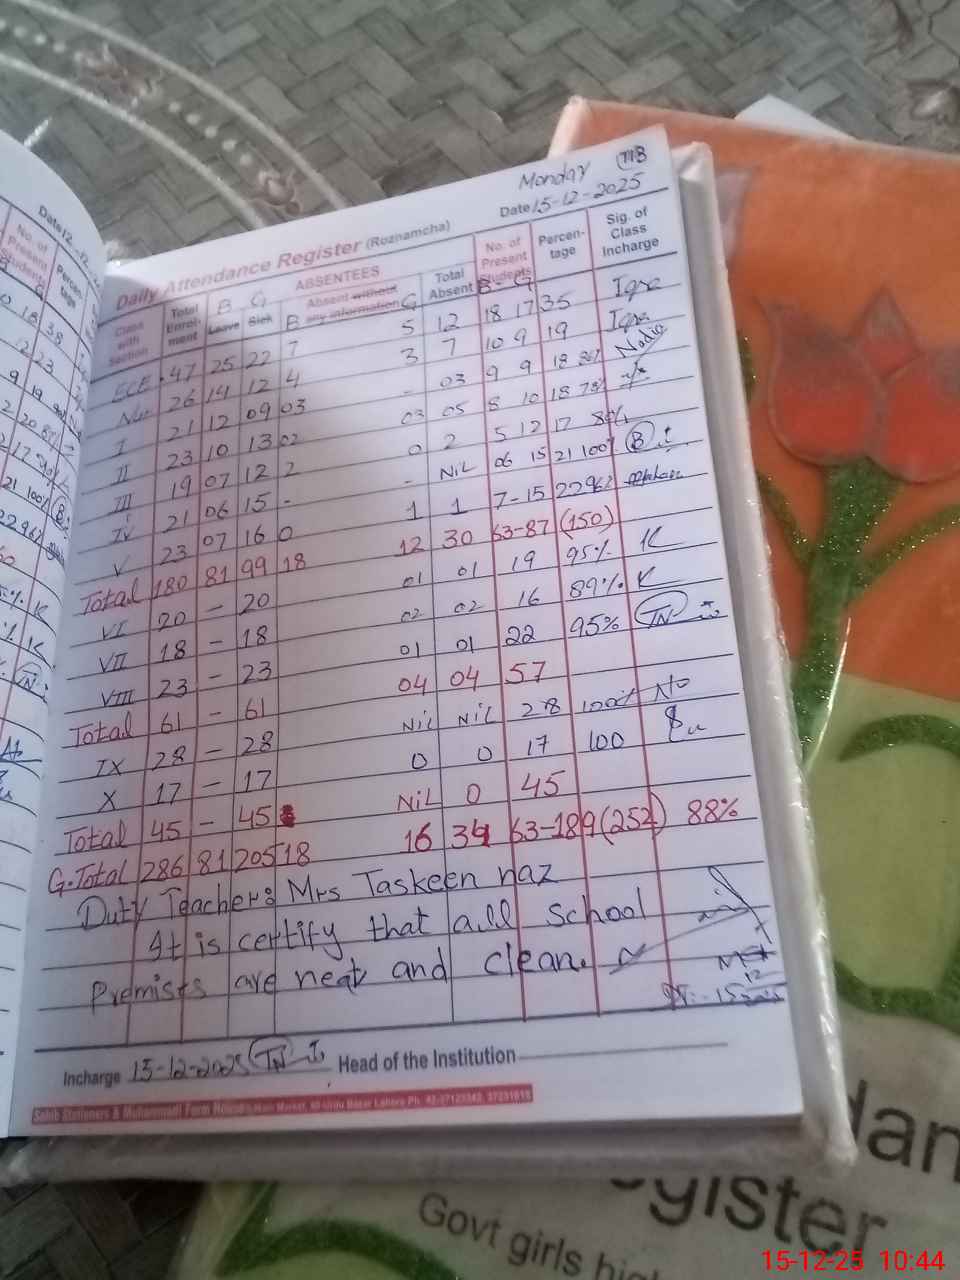 Monday 113
Date 15-12-2025
Daily Attendance Register (Roznamcha)
Class with Section Total Enrol-ment B Leave G Sick ABSENTEES B Absent without any information G Total Absent No. of Present Students B - G Percen-tage Sig. of Class Incharge
ECE 47 25 22 7 5 12 18 17 35 Iqra
Nur 26 14 12 4 3 7 10 9 19 Iqra
I 21 12 09 03 - 03 9 9 18 86% Nadia
II 23 10 13 02 03 05 8 10 18 78%
III 19 07 12 2 0 2 5 12 17 89%
IV 21 06 15 - - NiL 06 15 21 100% B
V 23 07 16 0 1 1 7-15 22 96%
Total 180 81 99 18 12 30 63-87 (150)
VI 20 - 20 01 01 19 95% K
VII 18 - 18 02 02 16 89% K
VIII 23 - 23 01 01 22 95% TN
Total 61 - 61 04 04 57
IX 28 - 28 NiL NiL 28 100%
X 17 - 17 0 0 17 100
Total 45 - 45 NiL 0 45
G.Total 286 81 205 18 16 34 63-189 (252) 88%
Duty Teacher: Mrs Taskeen naz
It is certify that all school
Premisis are neat and clean.
Incharge 15-12-2025 TN Head of the Institution
Sahib Stationers & Muhammadi Form House
Date 12-12-
No. of Present Students
Percen-tage
dan
gister
Govt girls hig
15-12-25 10:44